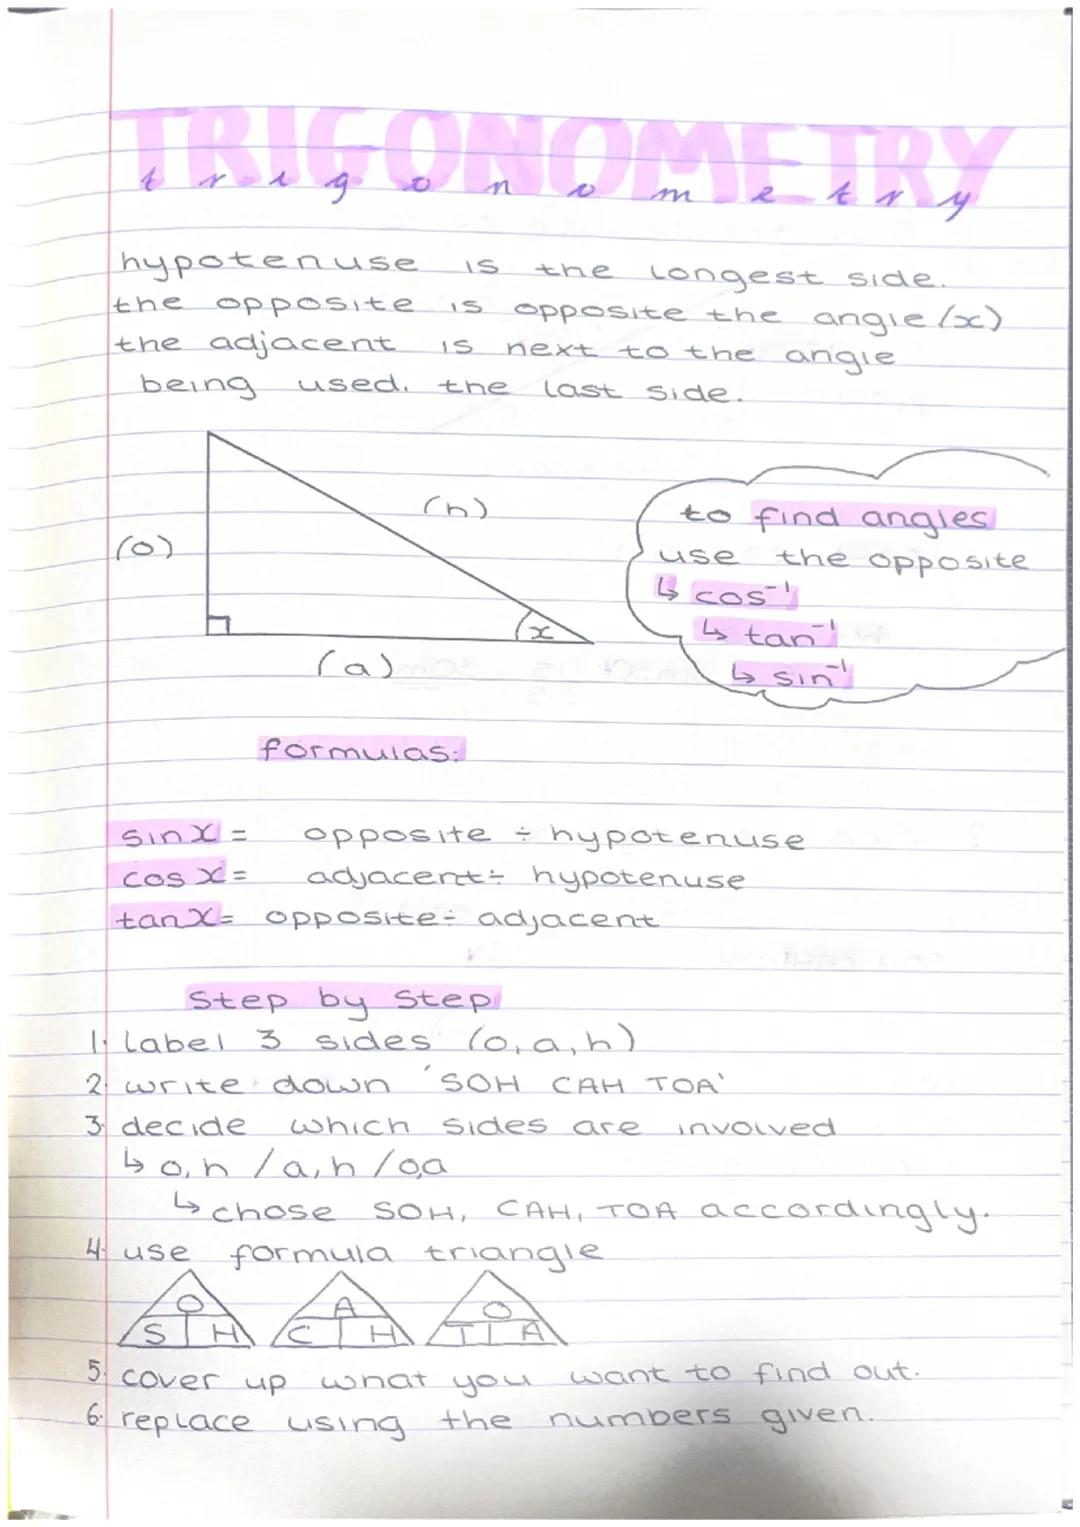 TRIGONOMETRY
trigonometry
hypotenuse is the longest side.
the opposite is opposite the angle (x)
the adjacent is next to the angle
being used. the last side.
(h)
(o)
x
(a)
to find angles
use the opposite
↳ cos⁻¹
↳ tan⁻¹
↳ sin⁻¹
formulas:
sin x = opposite ÷ hypotenuse
cos x = adjacent ÷ hypotenuse
tan x = opposite ÷ adjacent
Step by Step
1. Label 3 sides (o, a, h)
2. write down 'SOH CAH TOA'
3. decide which sides are involved
↳ o, h / a, h / o,a
↳ chose SOH, CAH, TOA accordingly.
4. use formula triangle
O A O
S H C H T A
5. cover up what you want to find out.
6. replace using the numbers given.